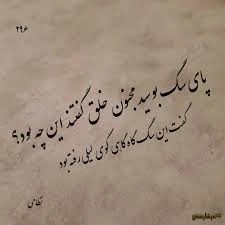 ۲۹۶
پای سگ بوسید مجنون خلق گفتند این چه بود؟
گفت این سگ گاه گاهی کوی لیلی رفته بود
نظامی